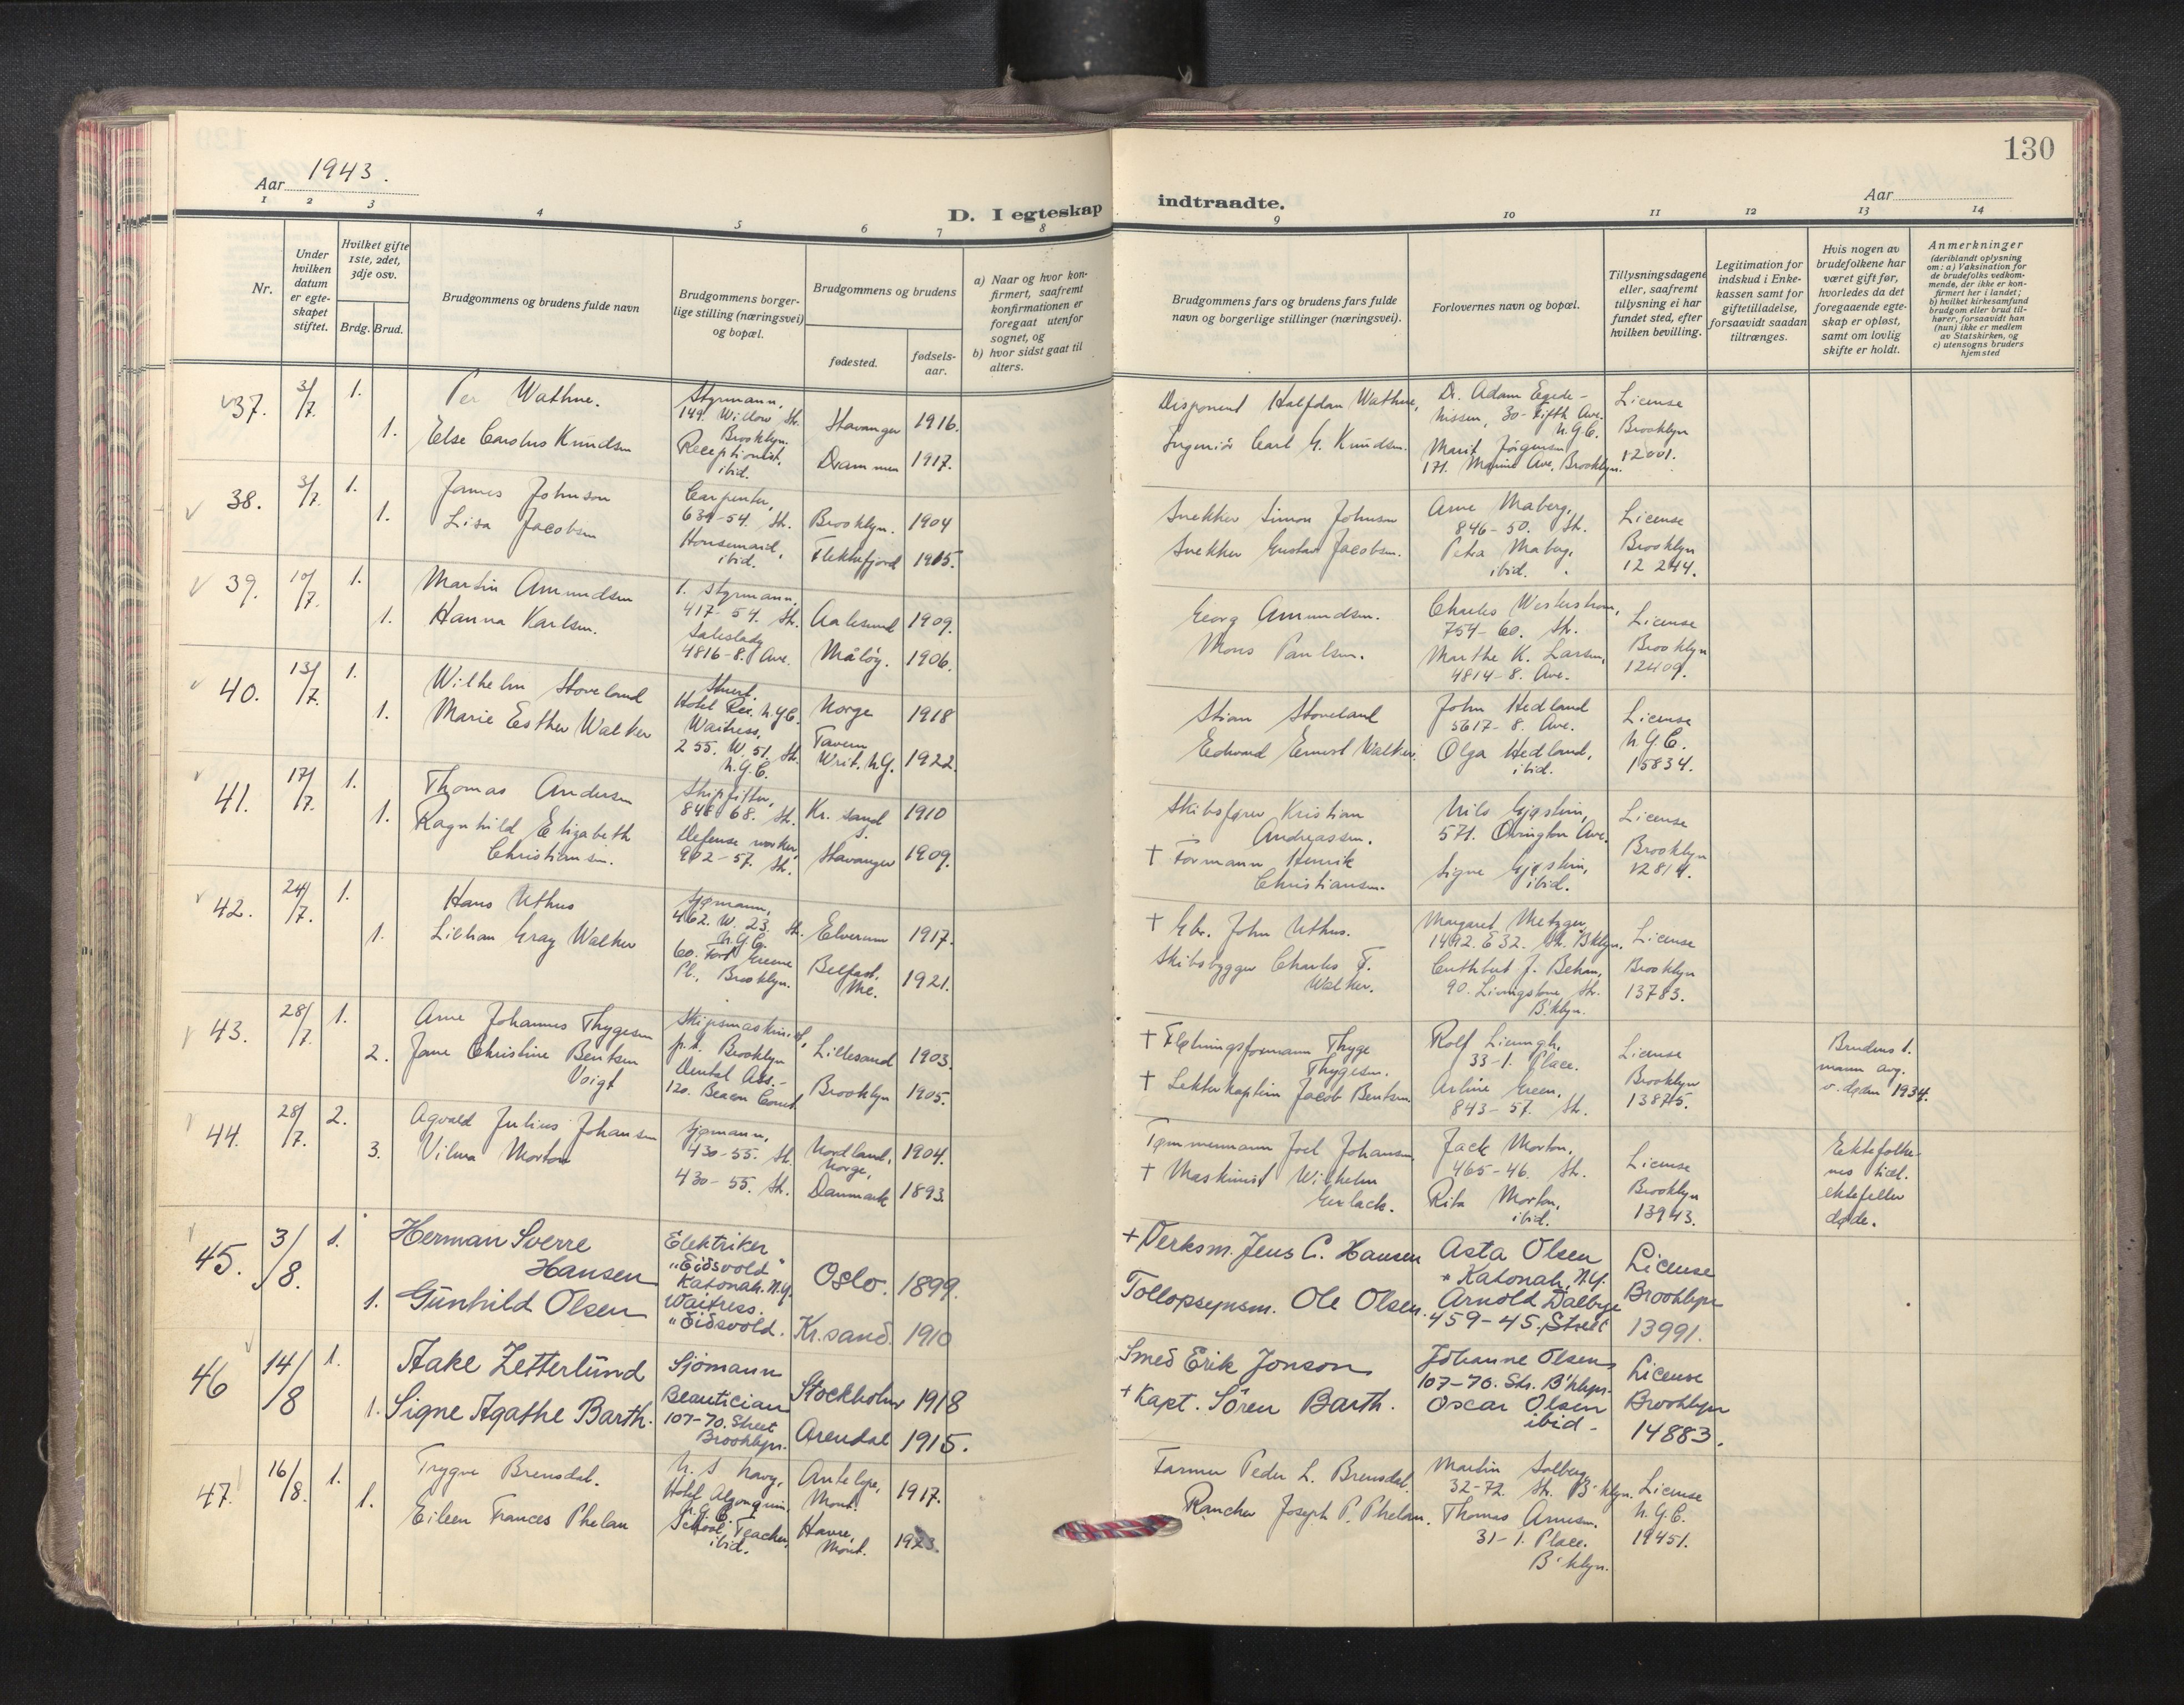 130
Aar 1943.
Aar
D. I egteskap indtraadte.
1 2 3 4 5 6 7 8 9 10 11 12 13 14
Nr.
Under
hvilken
datum
er egte-
skapet
stiftet.
Hvilket gifte
1ste, 2det,
3dje osv.
Brdg. Brud.
Brudgommens og brudens fulde navn
Brudgommens borger-
lige stilling (næringsvei)
og bopæl.
Brudgommens og brudens
fødested.
fødsels-
aar.
a) Naar og hvor kon-
firmert, saafremt
konfirmationen er
foregaat utenfor
sognet, og
b) hvor sidst gaat til
alters.
Brudgommens fars og brudens fars fulde
navn og borgerlige stillinger (næringsvei).
Forlovernes navn og bopæl.
Tillysningsdagene
eller, saafremt
tillysning ei har
fundet sted, efter
hvilken bevilling.
Legitimation for
indskud i Enke-
kassen samt for
giftetilladelse,
forsaavidt saadan
tiltrænges.
Hvis nogen av
brudefolkene har
været gift før,
hvorledes da det
foregaaende egte-
skap er opløst,
samt om lovlig
skifte er holdt.
Anmerkninger
(deriblandt oplysning
om: a) Vaksination for
de brudefolks vedkom-
mende, der ikke er kon-
firmert her i landet;
b) hvilket kirkesamfund
brudgom eller brud til-
hører, forsaavidt han
(hun) ikke er medlem
av Statskirken, og
c) utensogns bruders
hjemsted
37.
3/7.
1.
1.
Per Wathne.
Else Carolus Knudsen
Styrmann,
149. Willow Str.
Brooklyn.
Receptionist,
ibid.
Stavanger 1916.
Drammen 1917.
Disponent Halfdan Wathne,
Ingeniör Carl G. Knudsen.
Dr. Adam Egede-
Nissen, 30-Fifth Ave.
N.Y.C.
Marit Jörgensen
171. Marine Ave, Brooklyn.
License
Brooklyn
12001.
38.
3/7.
1.
1.
James Johnson
Lisa Jacobsen
Carpenter,
639-54. Str.
Housemaid,
ibid.
Brooklyn. 1904
Flekkefjord 1905.
Snekker Simon Johnson
Snekker Gustav Jacobsen.
Arne Maberg,
846-50. Str.
Petra Maberg,
ibid.
License
Brooklyn
12244.
39.
10/7.
1.
1.
Martin Amundsen
Hanna Karlsen.
1. Styrmann,
417-54. Str.
Saleslady
4816-8. Ave.
Aalesund 1909.
Måløy. 1906.
Georg Amundsen.
Mons Paulsen.
Charles Westerstrom,
754-60. Str.
Marthe K. Larsen,
4814-8. Ave.
License
Brooklyn
12409.
40.
13/7.
1.
1.
Wilhelm Stoveland
Marie Esther Walker
Stuert.
Hotel Rex. N.Y.C.
Waitress,
255. W. 51. Str.
N.Y.C.
Norge 1918
1922.
Stian Stoveland
Edward Ernest Walker.
John Hedland
5617-8. Ave.
Olga Hedland,
ibid.
License
N.Y.C.
15834.
41.
17/7.
1.
1.
Thomas Andersen
Ragnhild Elizabeth
Christiansen.
Shipfitter,
848 68. Str.
Defense worker,
902-57. Str.
Kr. sand S. 1910
Stavanger 1909.
Skibsfører Kristian
Andreassen.
† Formann Henrik
Christiansen.
Nils Gjøstein,
571. Ovington Ave.
Signe Gjøstein,
ibid.
License
Brooklyn
12814.
42.
24/7.
1.
1.
Hans Uthus
Lillian Gray Walker
Sjømann,
462. W. 23. Str.
N.Y.C.
60. Fort Greene
Pl., Brooklyn.
Elverum 1917.
Belfast,
Me. 1921.
† Gbr. John Uthus.
Skibsbygger Charles F.
Walker.
Margaret Metzger,
1492. E 32. Str. Bklyn.
Cuthbert J. Behan,
90. Livingstone Str.
B'klyn.
License
Brooklyn
13783.
43.
28/7.
1.
2.
Arne Johannes Thygesen
Jane Christine Bentsen
Voigt
Skipsmaskinist,
p.t. Brooklyn
Dental Ass.-
120. Beacon Court
Lillesand 1903.
Brooklyn 1905.
† Fløtningsformann Thyge
Thygesen.
† Lekterkaptein Jacob Bentsen
Rolf Liumgh,
33-1. Place.
Arline Green,
843-57. Str.
License
Brooklyn
13875.
Brudens 1.
mann avg.
v. døden 1934.
44.
28/7.
2.
3.
Agvald Julius Johansen
Vilma Morton
Sjømann,
430-55. Str.
430-55. Str.
Nordland,
Norge, 1904.
Danmark 1893
Tømmermann Joel Johansen
† Maskinist Wilhelm
Gerlach.
Jack Morton,
465-46. Str.
Rita Morton,
ibid.
License
Brooklyn
13943.
Ektefolke-
nes tidl.
ektefeller
døde.
45.
3/8.
1.
1.
Herman Sverre
Hansen
Gunhild Olsen
Elektriker
"Eidsvold"
Katonah. N.Y.
Waitress.
"Eidsvold.
Oslo. 1899.
Kr. sand. 1910
+ Verksm. Jens C. Hansen
Tolloppsynsm. Ole Olsen.
Asta Olsen
Katonah, N.Y.
Arnold Dalbye
459-45. Street
License
Brooklyn
13991.
46
14/8
1.
1.
Aake Zetterlund
Signe Agathe Barth.
Sjömann
Beautician
107-70. Street
Brooklyn.
Stockholm 1918
Arendal 1915.
Smed Erik Jonson
+ Kapt. Sören Barth.
Johanne Olsen
107-70. Str. B'klyn.
Oscar Olsen
ibid-
License
Brooklyn
14883.
47.
16/8.
1.
1.
Trygve Brensdal.
Eileen Frances Phelan
U. S Navy,
Hotel Algonquin,
N.Y.C.
School Teacher,
ibid.
Antelope,
Mont. 1917.
Havre,
Mont. 1923.
Farmer Peder L. Brensdal.
Rancher Joseph P. Phelan.
Martin Solberg,
32-72. Str. B'klyn.
Thomas Arnesen.
31-1. Place.
B'klyn.
License
N.Y.C.
19451.